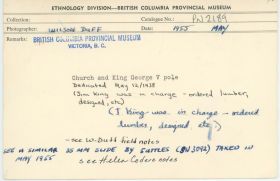 ETHNOLOGY DIVISION—BRITISH COLUMBIA PROVINCIAL MUSEUM
Collection: Catalogue No.: PN 2189
Photographer: WILSON DUFF Date: 1955 MAY
Remarks: BRITISH COLUMBIA PROVINCIAL MUSEUM
VICTORIA, B.C.
Church and King George V pole
Dedicated May 12/1938
(Jim King was in charge - ordered lumber,
designed, etc)
(J. King was in charge - ordered
lumber, designed, etc)
- see W. Duff field notes
SEE A SIMILAR 35 MM SLIDE BY SUTTLES (PN 3092) TAKEN IN
MAY 1955
- see Helen Codere notes